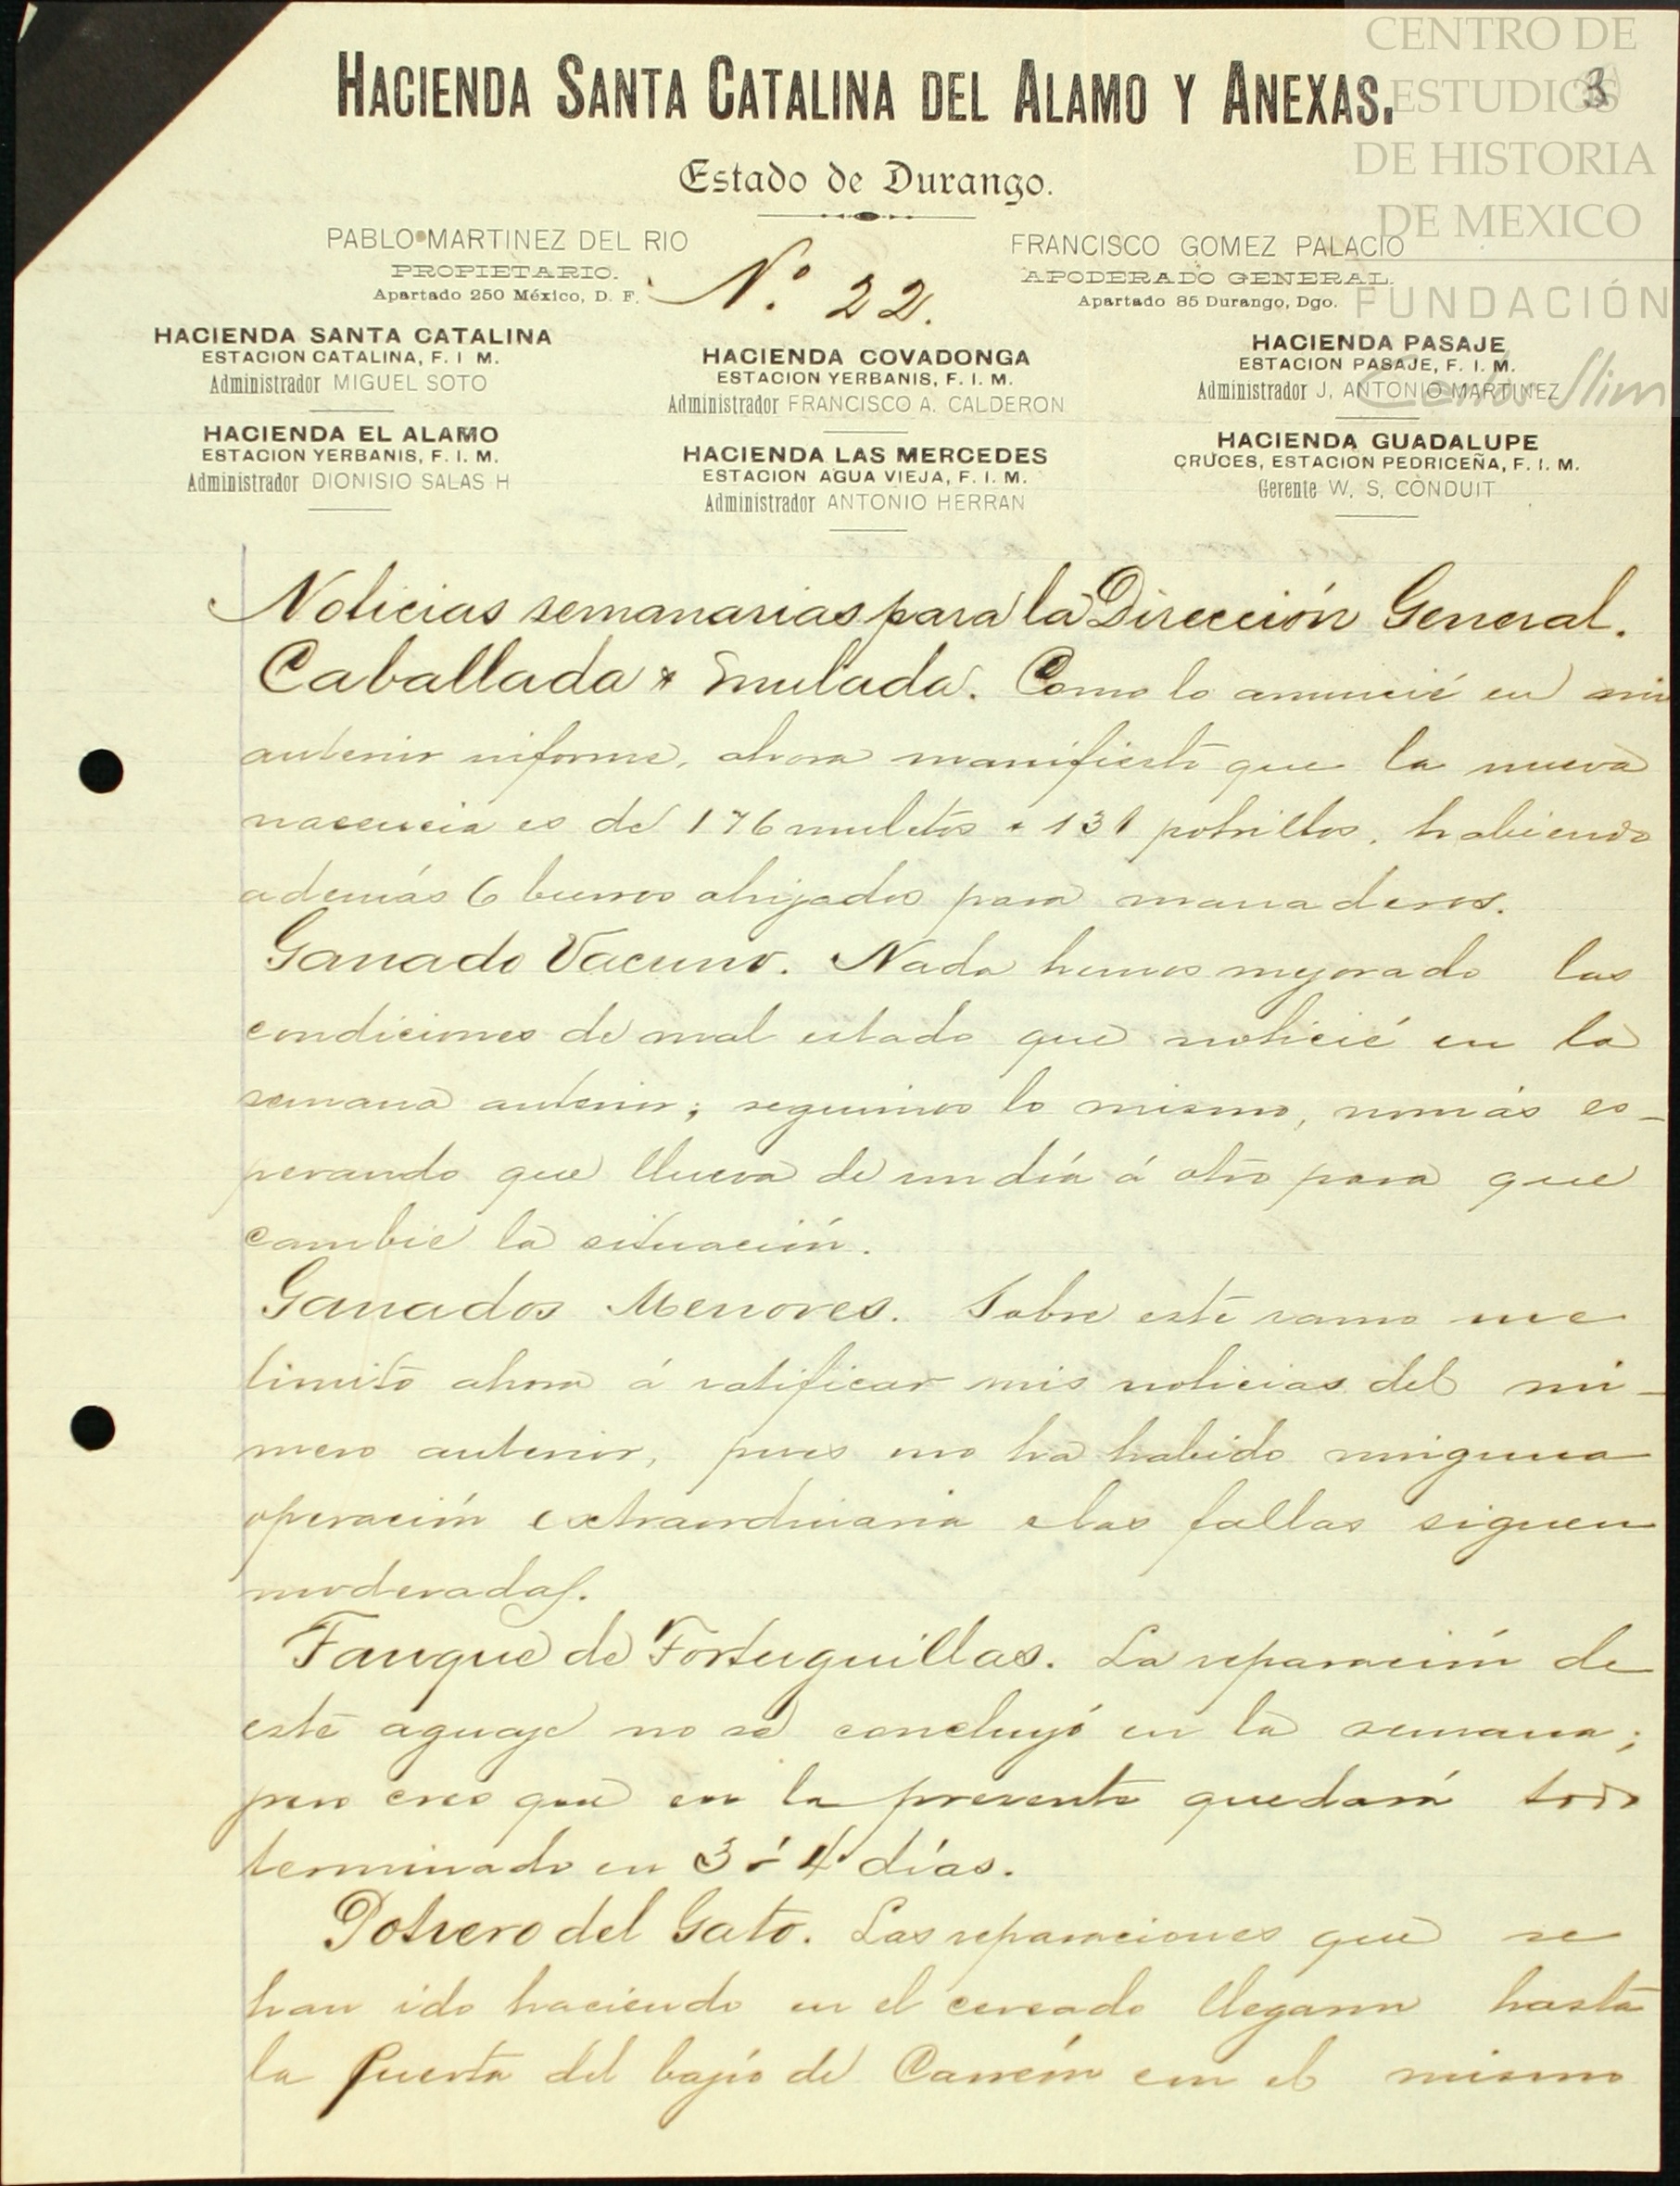 CENTRO DE
ESTUDIOS
DE HISTORIA
DE MEXICO
FUNDACIÓN
Carlos Slim
3
HACIENDA SANTA CATALINA DEL ALAMO Y ANEXAS.
Estado de Durango.
PABLO MARTINEZ DEL RIO
PROPIETARIO.
Apartado 250 México, D. F.
N.º 22.
FRANCISCO GOMEZ PALACIO
APODERADO GENERAL.
Apartado 85 Durango, Dgo.
HACIENDA SANTA CATALINA
ESTACION CATALINA, F. I M.
Administrador MIGUEL SOTO
HACIENDA COVADONGA
ESTACION YERBANIS, F. I. M.
Administrador FRANCISCO A. CALDERON
HACIENDA PASAJE
ESTACION PASAJE, F. I. M.
Administrador J, ANTONIO MARTINEZ
HACIENDA EL ALAMO
ESTACION YERBANIS, F. I. M.
Administrador DIONISIO SALAS H
HACIENDA LAS MERCEDES
ESTACION AGUA VIEJA, F. I. M.
Administrador ANTONIO HERRAN
HACIENDA GUADALUPE
CRUCES, ESTACION PEDRICEÑA, F. I. M.
Gerente W. S, CONDUIT
Noticias semanarias para la Dirección General.
Caballada y mulada. Como lo anuncié en mi
anterior informe, ahora manifiesto que la nueva
nacencia es de 176 muletos y 131 potrillos, habiendo
además 6 burros ahijados para manaderos.
Ganado Vacuno. Nada hemos mejorado las
condiciones de mal estado que noticié en la
semana anterior; seguimos lo mismo, nomás es-
perando que llueva de un día á otro para que
cambie la situación.
Ganados Menores. Sobre este ramo me
limito ahora á ratificar mis noticias del nú-
mero anterior, pues no ha habido ninguna
operación extraordinaria y las fallas siguen
moderadas.
Tanque de Tortuguillas. La reparación de
este aguaje no se concluyó en la semana;
pero creo que en la presente quedará todo
terminado en 3 ó 4 días.
Potrero del Gato. Las reparaciones que se
han ido haciendo en el cercado llegaron hasta
la puerta del bajío de en el mismo